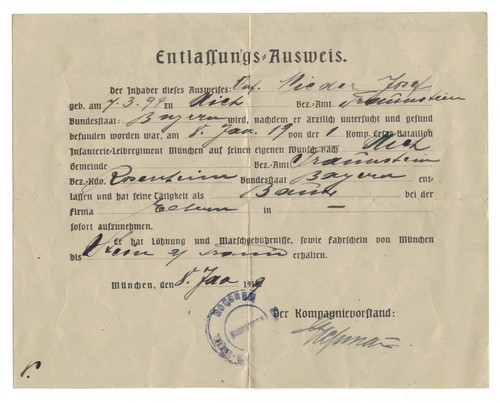 Entlassungs-Ausweis.
Der Inhaber dieses Ausweises: Inf. Nieder Josef
geb. am 7. 3. 99 zu Aich Bez.-Amt Traunstein
Bundesstaat: Bayern wird, nachdem er ärztlich untersucht und gesund
befunden worden war, am 8. Jan. 19 von der 1 Komp. Ersatz-Bataillon
Infanterie-Leibregiment München auf seinen eigenen Wunsch nach Aich
Gemeinde Bez.-Amt Traunstein
Bez.-Kdo. Rosenheim Bundesstaat Bayern ent-
lassen und hat seine Tätigkeit als bei der
Firma Eltern in —
sofort aufzunehmen.
Er hat Löhnung und Marschgebührnisse, sowie Fahrschein von München
bis Stein a/ Traun erhalten.
München, den 8. Jan 1919
Der Kompagnievorstand: